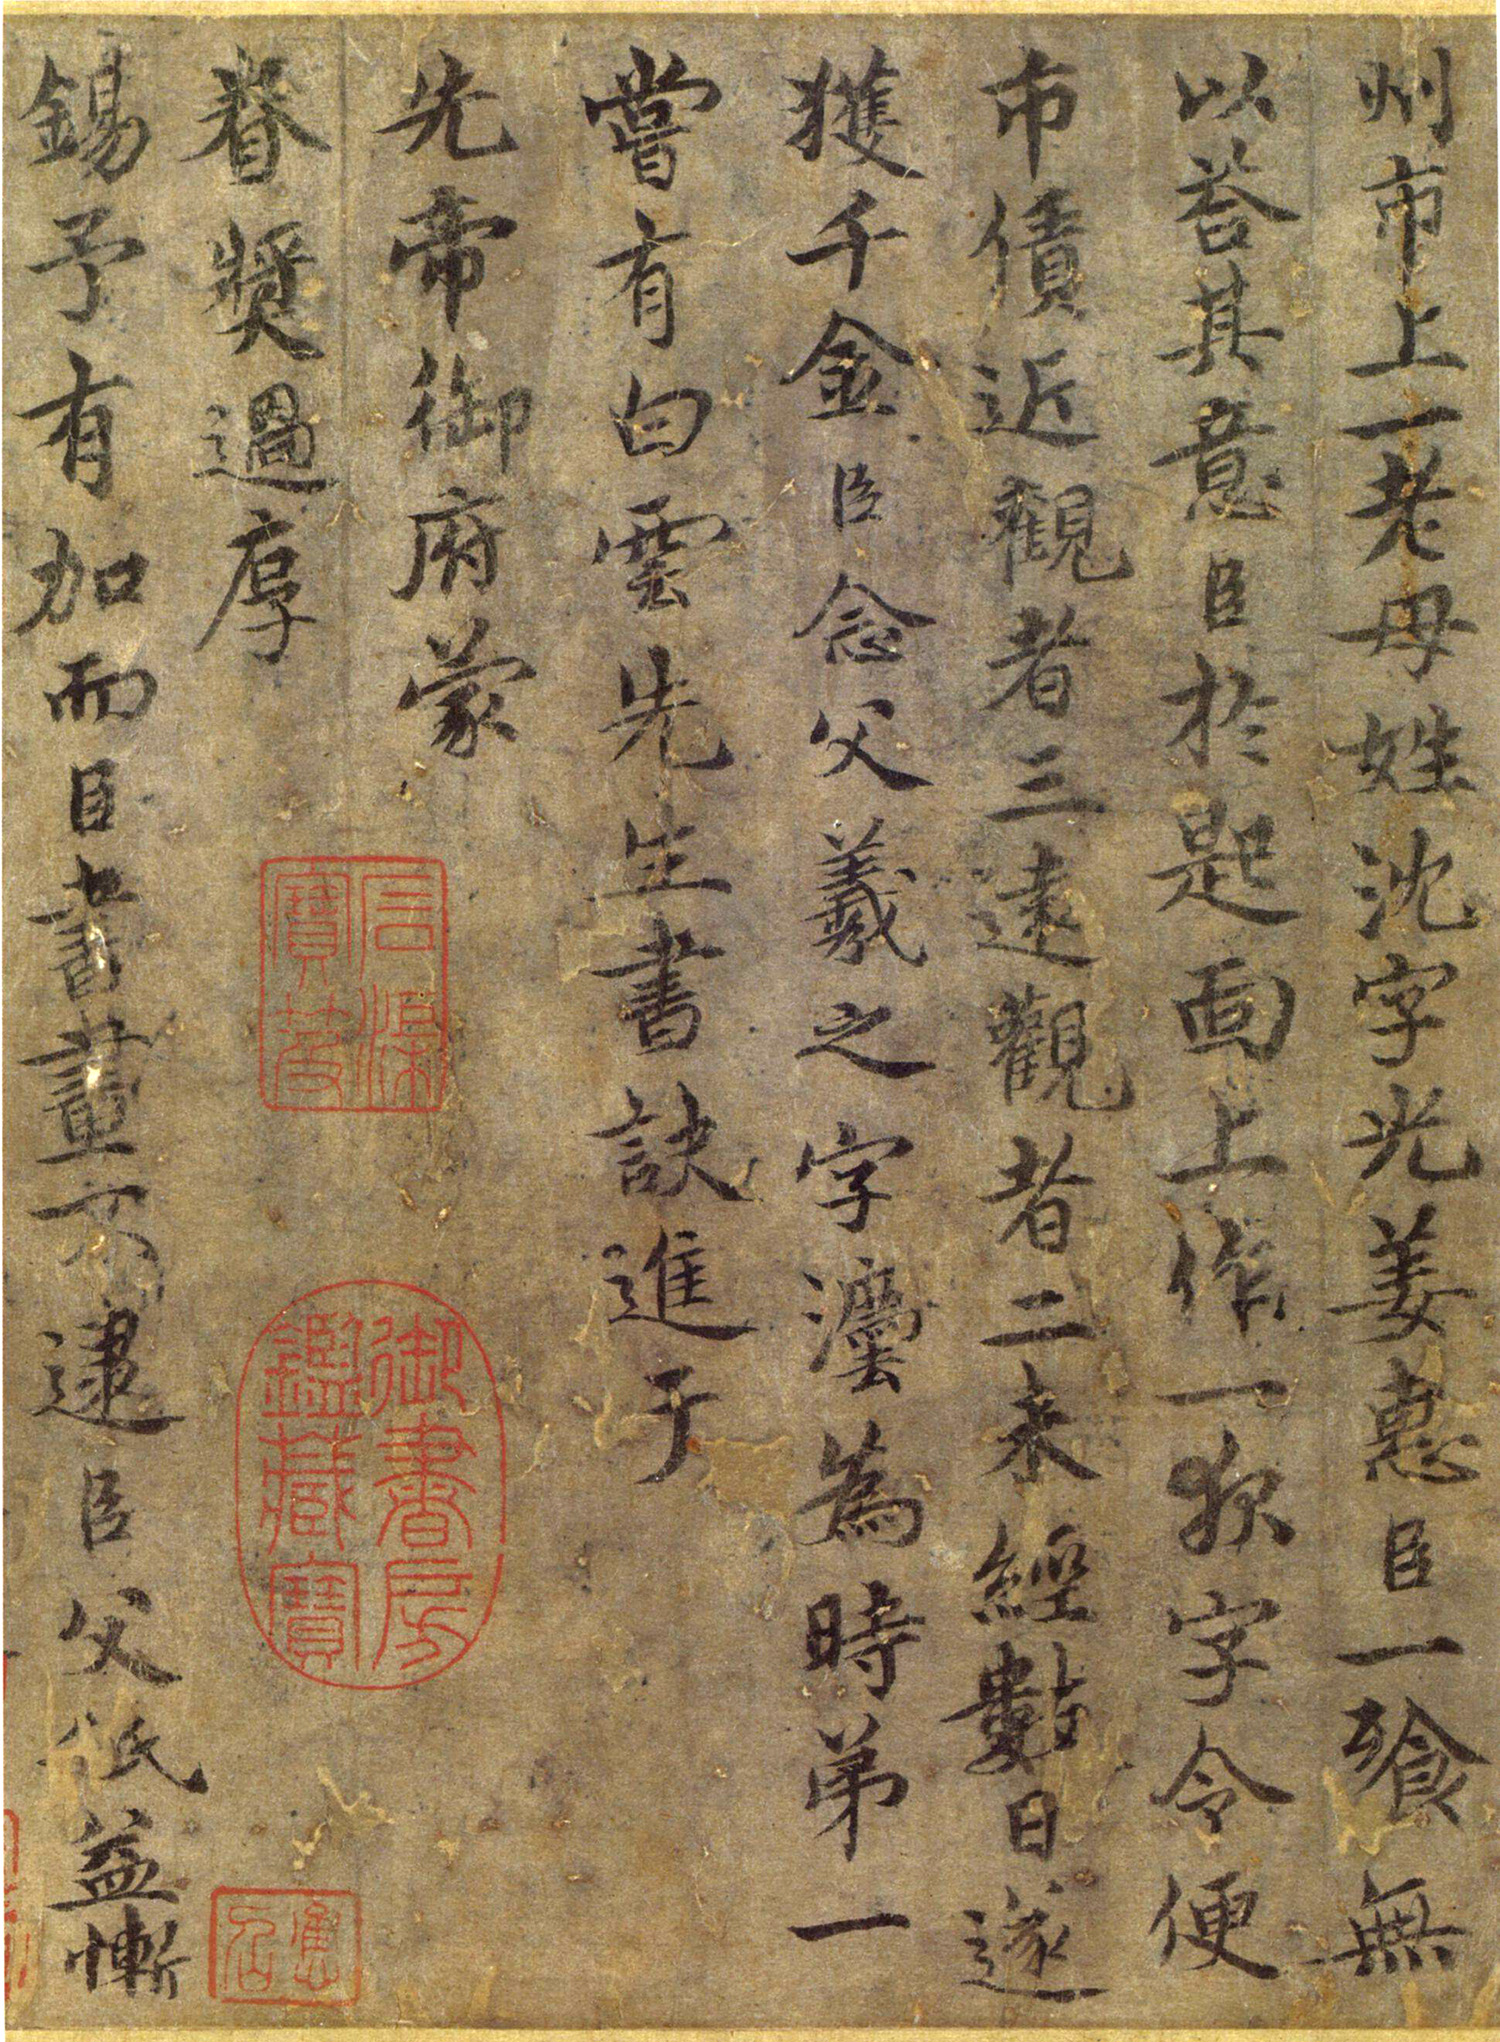 州市上一老母姓沈字光姜惠臣一飱無
以荅其意臣於匙面上作一夜字令便
市債近觀者三遠觀者二未經數日遂
獲千金臣念父羲之字灋為時弟一
嘗有白雲先生書訣進于
先帝御府蒙
眷奬過厚
錫予有加而臣書畫不逮臣父祗益慚
石渠寶笈
御書房鑑藏寶